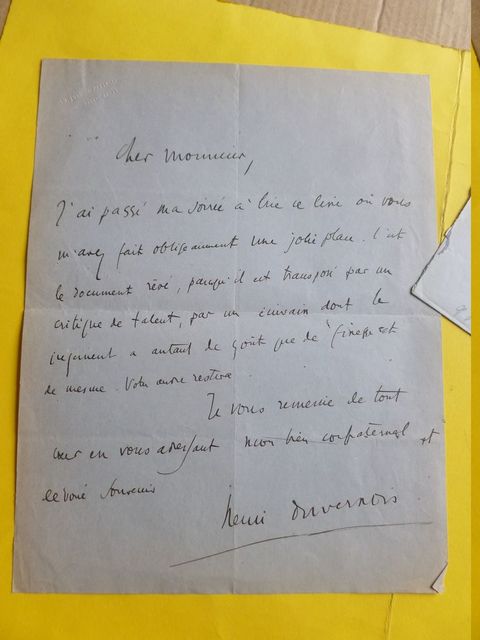 Cher Monsieur,
J'ai passé ma soirée à lire ce livre où vous
m'avez fait obligeamment une jolie place. C'est
le document rêvé, puisqu'il est transposé par un
critique de talent, par un écrivain dont le
jugement a autant de goût que de finesse et
de mesure. Votre œuvre restera.
Je vous remercie de tout
cœur en vous adressant mon bien confraternel et
dévoué souvenir
Henri Duvernois